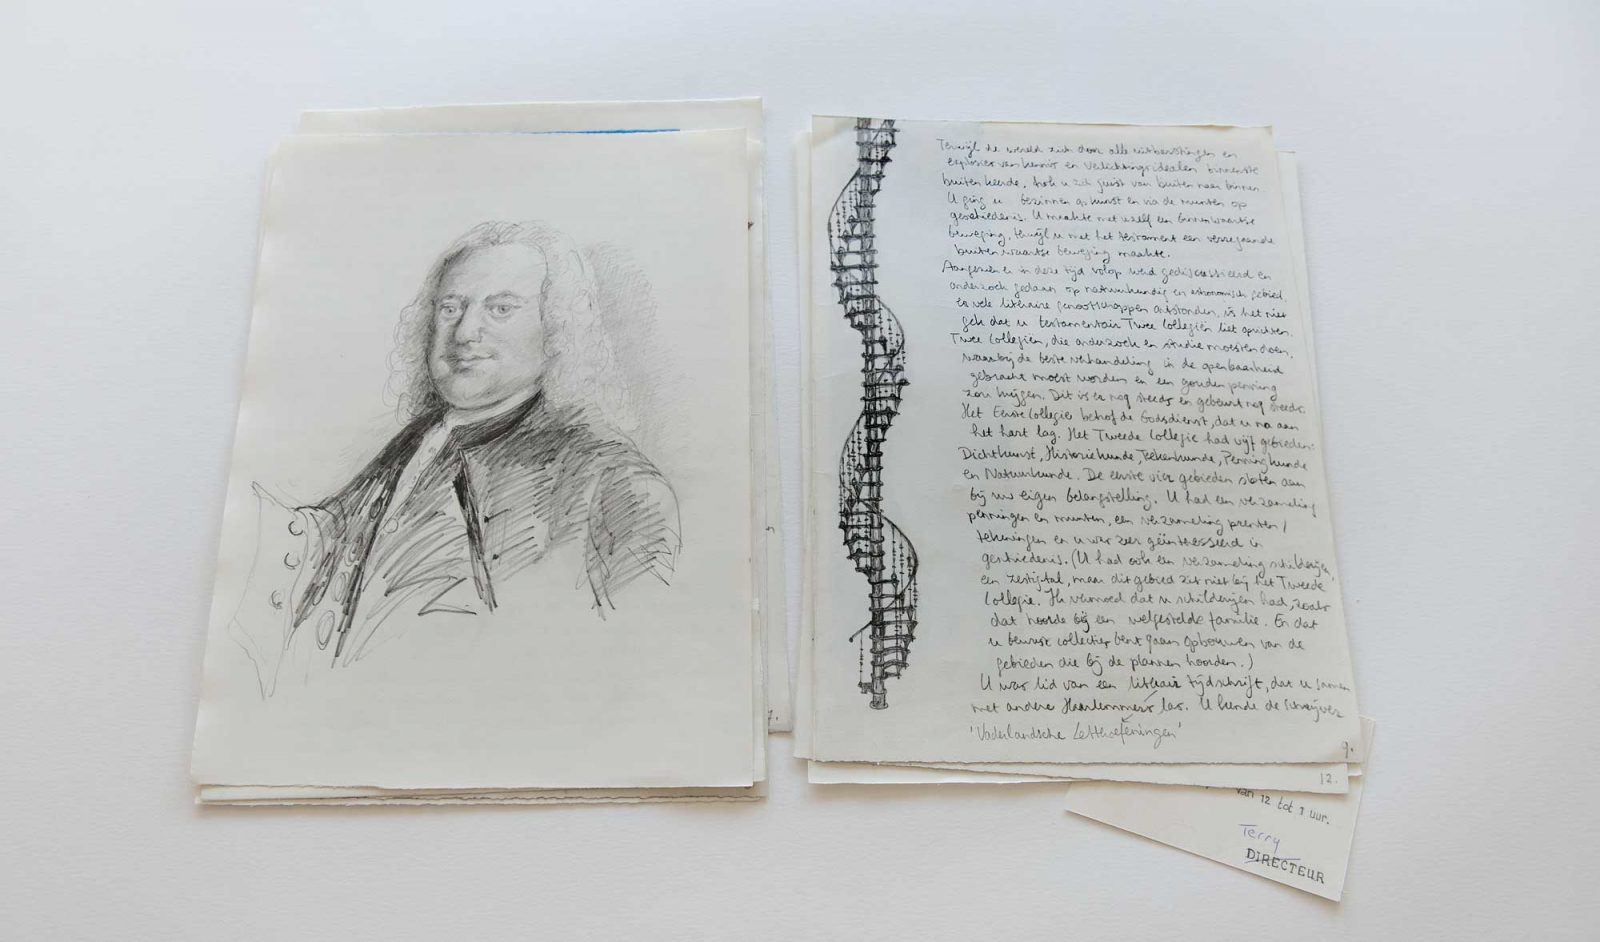 Terwijl de wereld zich door alle uitbarstingen en
explosies van kennis en verlichtingsidealen binnenste
buiten keerde, trok u zich juist van buiten naar binnen.
U ging u bezinnen op kunst en via de munten op
geschiedenis. U maakte met uzelf een binnenwaartse
beweging, terwijl u met het testament een verregaande
buitenwaartse beweging maakte.
Aangezien er in deze tijd volop werd gediscussieerd en
onderzoek gedaan op natuurkundig en astronomisch gebied,
er vele literaire genootschappen ontstonden, is het niet
gek dat u testamentair Twee Collegiën liet oprichten.
Twee Collegiën, die onderzoek en studie moesten doen,
waarbij de beste verhandeling in de openbaarheid
gebracht moest worden en een gouden penning
zou krijgen. Dit is er nog steeds en gebeurt nog steeds.
Het Eerste Collegie behoef de Godsdienst, dat u na aan
het hart lag. Het Tweede Collegie had vijf gebieden:
Dichtkunst, Historiekunde, Teekenkunde, Penningkunde
en Natuurkunde. De eerste vier gebieden sloten aan
bij uw eigen belangstelling. U had een verzameling
penningen en munten, een verzameling prenten /
tekeningen en u was zeer geïnteresseerd in
geschiedenis. (U had ook een verzameling schilderijen,
een zestigtal, maar dit gebied zit niet bij het Tweede
Collegie. Ik vermoed dat u schilderijen had, zoals
dat hoorde bij een welgestelde familie. En dat
u bewust collecties bent gaan opbouwen van de
gebieden die bij de plannen hoorden.)
U was lid van een literair tijdschrift, dat u samen
met andere Haarlemmers las. U kende de schrijver
'Vaderlandsche Letteroefeningen'
9.
12.
7.
van 12 tot 1 uur.
Terry
DIRECTEUR